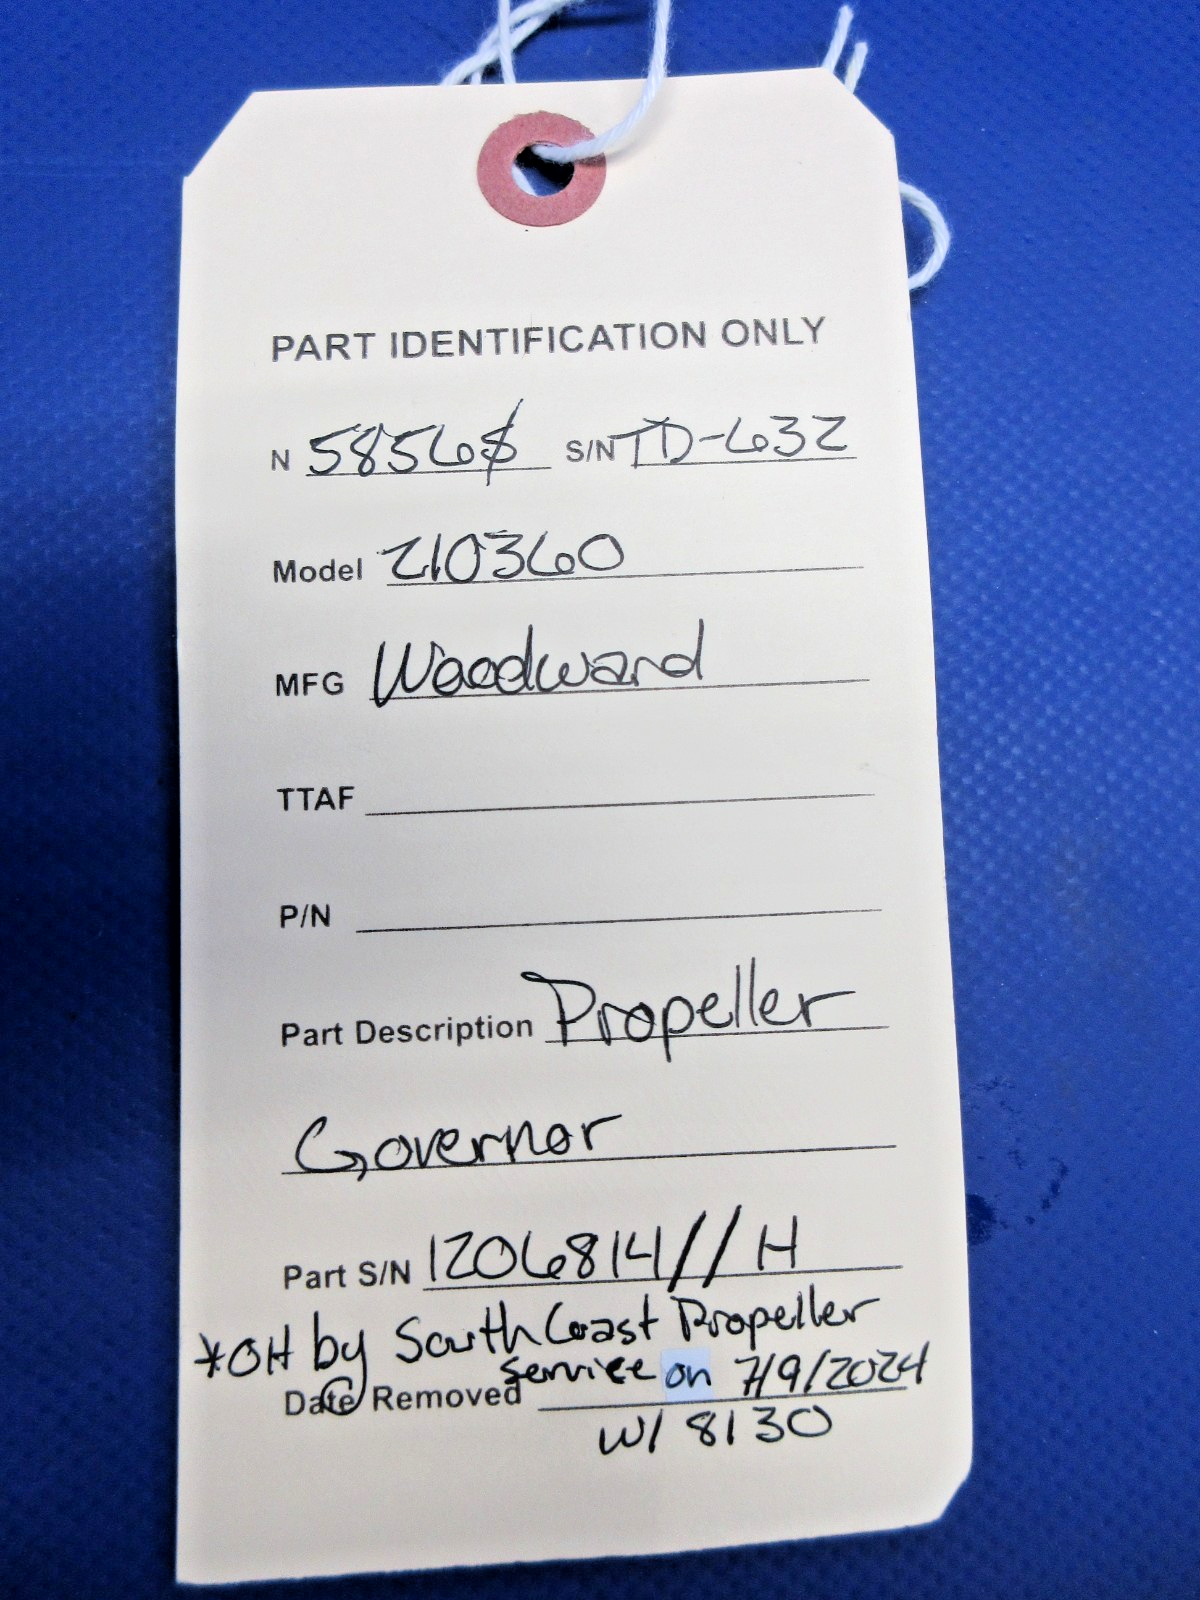 PART IDENTIFICATION ONLY
N 5856S S/N TD-632
Model 210360
MFG Woodward
TTAF
P/N
Part Description Propeller
Governor
Part S/N 1206814// H
*OH by South Coast Propeller
service on 7/9/2024
Date Removed
W/ 8130